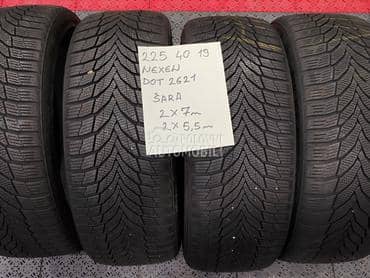 225 40 19
NEXEN
DOT 2621
ŠARA
2x7m
2x5,5m
POLOVNI
AUTOMOBILI